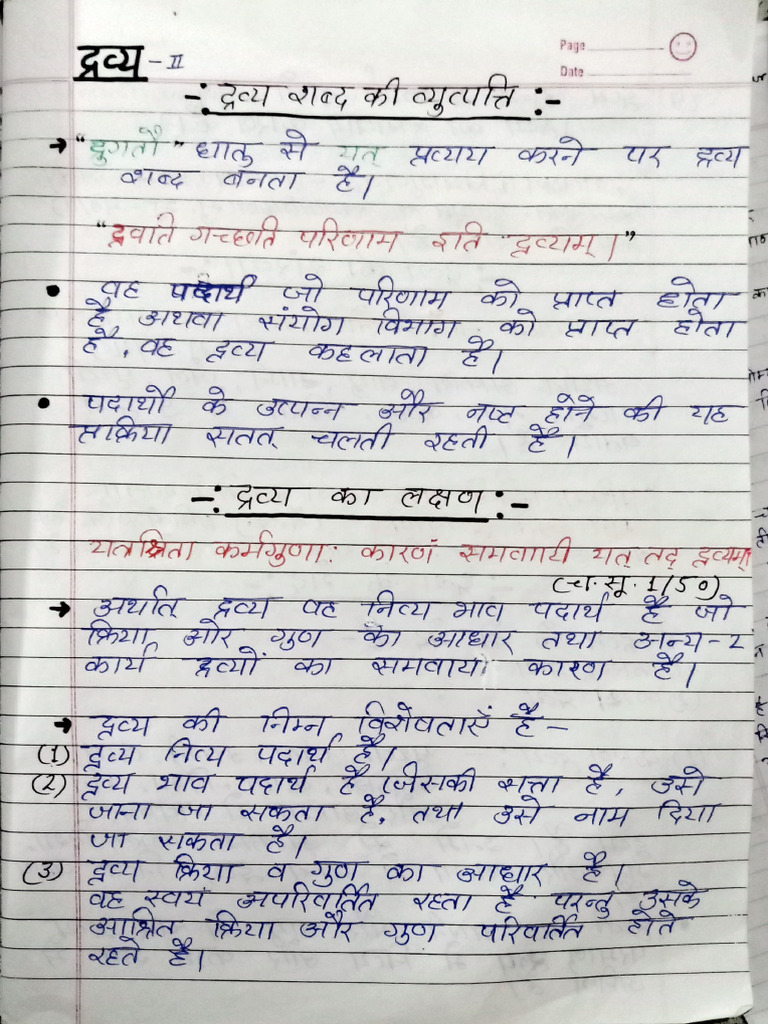 Page
Date
द्रव्य - II
-: द्रव्य शब्द की व्युत्पत्ति :-
→ "द्रुगतौ" धातु से यत् प्रत्यय करने पर द्रव्य
शब्द बनता है।
"द्रवति गच्छति परिणाम इति द्रव्यम्।"
• वह पदार्थ जो परिणाम को प्राप्त होता
है अथवा संयोग विभाग को प्राप्त होता
है, वह द्रव्य कहलाता है।
• पदार्थो के उत्पन्न और नष्ट होने की यह
प्रक्रिया सतत् चलती रहती है।
-: द्रव्य का लक्षण :-
यत्राश्रिता कर्मगुणा: कारणं समवायी यत् तद् द्रव्यम्।
(च. सू. 1/50)
→ अर्थात् द्रव्य वह नित्य भाव पदार्थ है जो
क्रिया और गुण का आधार तथा अन्य-2
कार्य द्रव्यों का समवाय कारण है।
→ द्रव्य की निम्न विशेषताएँ है -
(1) द्रव्य नित्य पदार्थ है।
(2) द्रव्य भाव पदार्थ है (जिसकी सत्ता है, उसे
जाना जा सकता है, तथा उसे नाम दिया
जा सकता है।
(3) द्रव्य क्रिया व गुण का आधार है।
वह स्वयं अपरिवर्तित रहता है परन्तु उसके
आश्रित क्रिया और गुण परिवर्तित होते
रहते है।